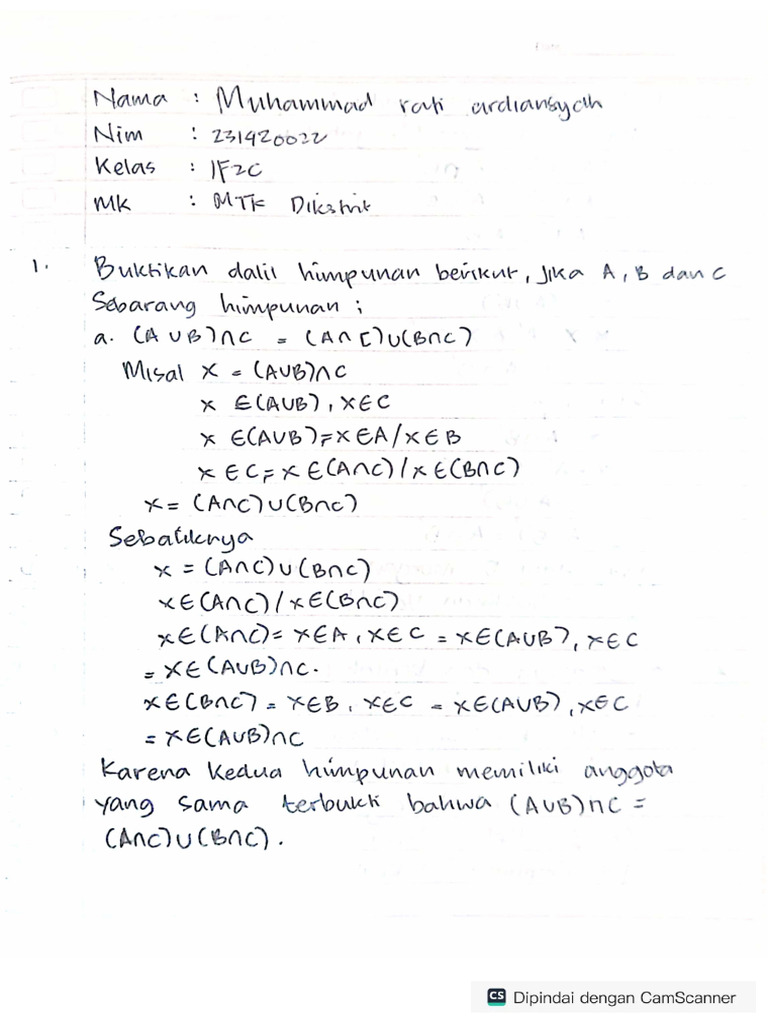 Nama : Muhammad rafi ardiansyah
Nim : 231420022
Kelas : IF2C
MK : MTK Dikstrit
1. Buktikan dalil himpunan berikut, Jika A, B dan C
Sebarang himpunan ;
a. (A ∪ B) ∩ C = (A ∩ C) ∪ (B ∩ C)
Misal x = (A∪B)∩C
x ∈ (A∪B), x∈C
x ∈(A∪B) = x∈A / x∈B
x ∈ C = x ∈ (A∩C) / x ∈ (B∩C)
x = (A∩C) ∪ (B∩C)
Sebaliknya
x = (A∩C) ∪ (B∩C)
x∈(A∩C) / x∈(B∩C)
x∈(A∩C) = x∈A, x∈C = x∈(A∪B), x∈C
= x∈(A∪B)∩C.
x∈(B∩C) = x∈B, x∈C = x∈(A∪B), x∈C
= x∈(A∪B)∩C
Karena kedua himpunan memiliki anggota
yang sama terbukti bahwa (A∪B)∩C =
(A∩C)∪(B∩C).
CS Dipindai dengan CamScanner